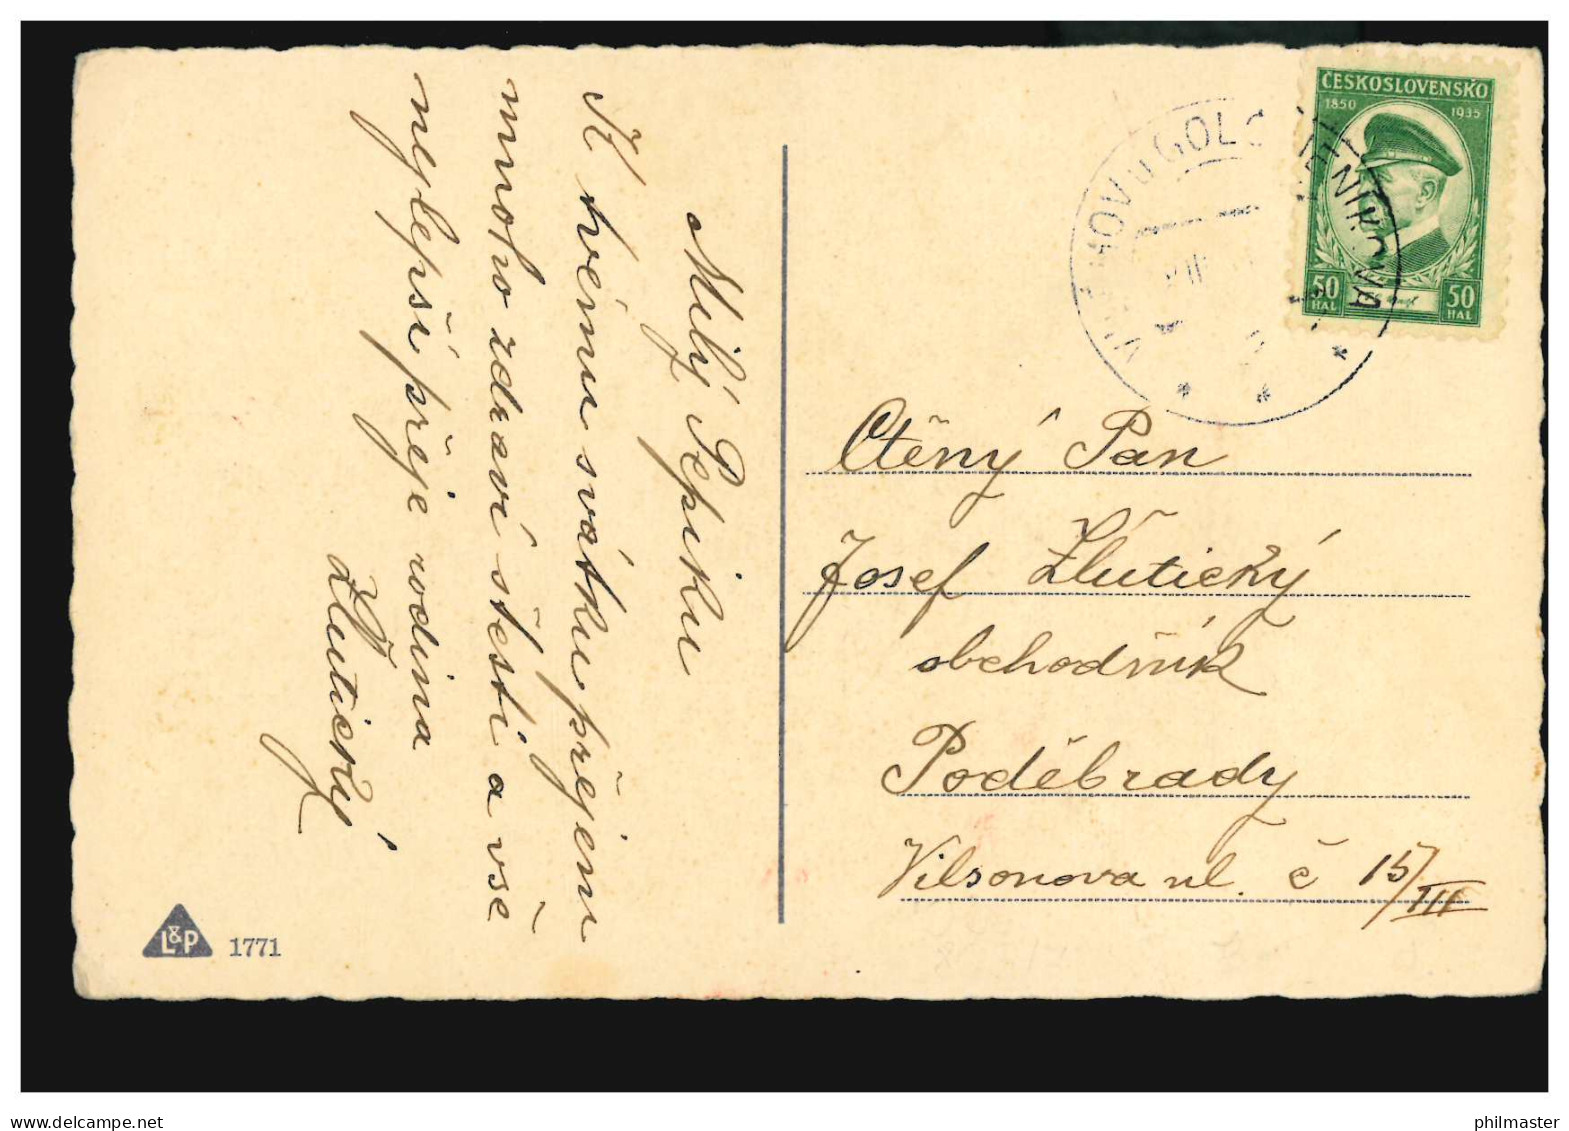 Milý Pepiku
K tvému svátku přejem
mnoho zdraví štestí a vše
nejlepší přeje rodina
Žlutický
L&P 1771
ČESKOSLOVENSKO
1850 1935
50 HAL 50 HAL
HOV u GOLČ JENÍKOVA
VIII
Ctěný Pan
Josef Žlutický
obchodník
Poděbrady
Vilsonova ul. č 15/III
philmaster